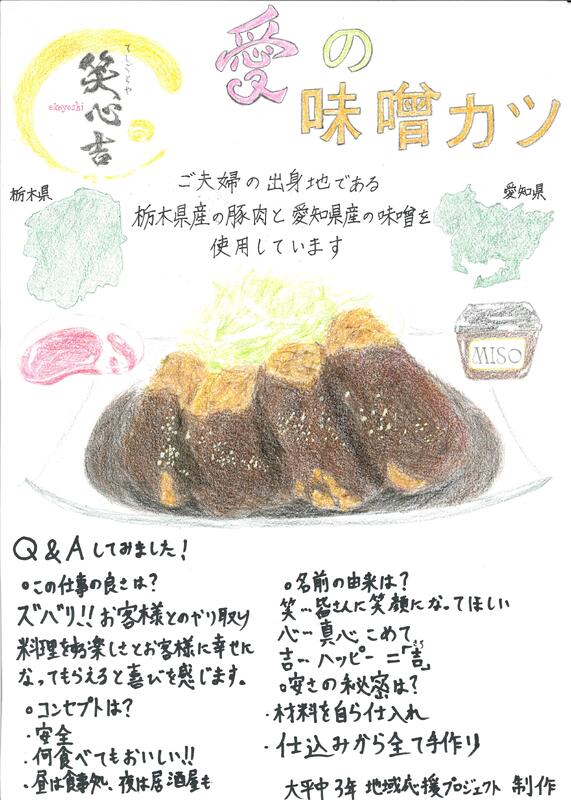 笑心吉
ekayoshi
愛の
味噌カツ
ご夫婦の出身地である
栃木県産の豚肉と愛知県産の味噌を
使用しています
栃木県
愛知県
MISO
Q&Aしてみました!
○この仕事の良さは?
ズバリ!!お客様とのやり取り
料理を
お客様に幸せに
なってもらえると喜びを感じます。
○コンセプトは?
・安全
・何食べてもおいしい!!
・昼は食事処、夜は居酒屋も
○名前の由来は?
笑…皆さんに笑顔になってほしい
心…真心こめて
吉…ハッピー=「吉」
○安さの秘密は?
・材料を自ら仕入れ
・仕込みから全て手作り
大平中3年 地域応援プロジェクト 制作